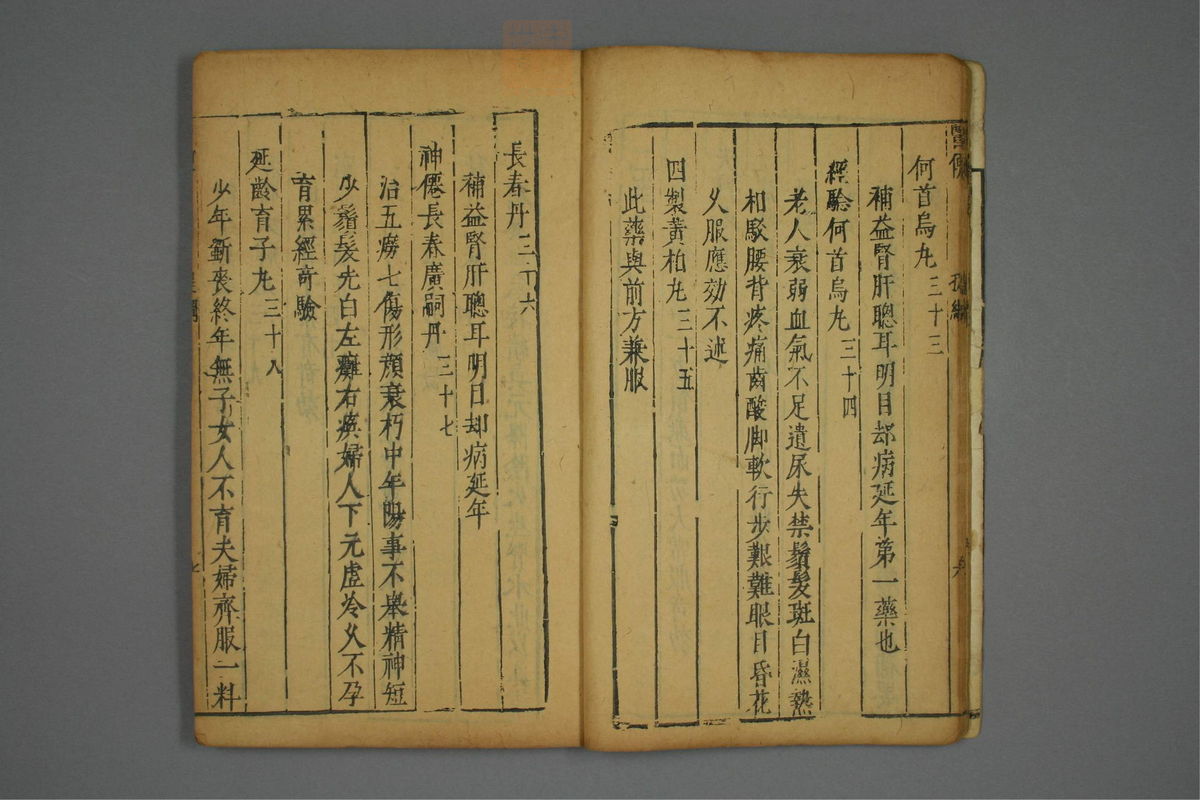 何首烏丸三十三
補益腎肝聰耳明目却病延年第一藥也
經驗何首烏丸三十四
老人衰弱血氣不足遺尿失禁鬚髮斑白濕熱
相駁腰背疼痛齒酸脚軟行步艱難眼目昏花
久服應効不述
四製黃柏丸三十五
此藥與前方兼服
長春丹三十六
補益腎肝聰耳明目却病延年
神僊長春廣嗣丹三十七
治五癆七傷形顏衰朽中年陽事不舉精神短
少鬚髮先白左癱右瘓婦人下元虛冷久不孕
育累經奇驗
延齡育子丸三十八
少年斵喪終年無子女人不育夫婦齊服一料